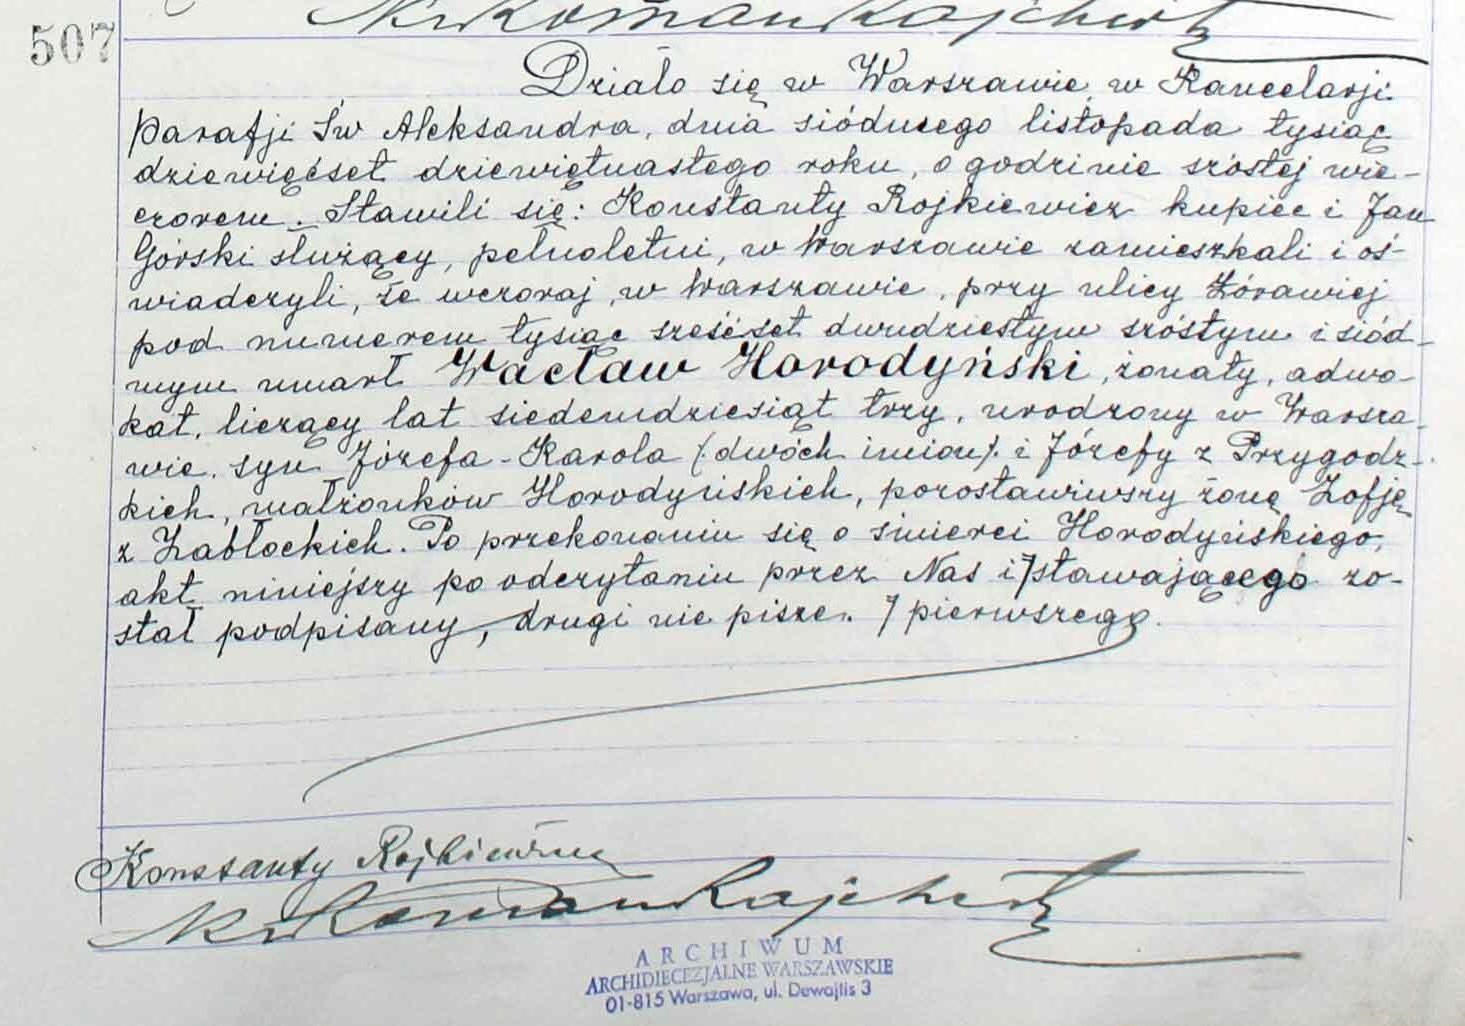 Roman Rajchert
507
Działo się w Warszawie w Kancelarji
parafji Św Aleksandra, dnia siódmego listopada tysiąc
dziewięćset dziewiętnastego roku, o godzinie szóstej wie-
czorem. Stawili się: Konstanty Rojkiewicz kupiec i Jan
Górski służący, pełnoletni, w Warszawie zamieszkali i oś-
wiadczyli, że wczoraj, w Warszawie, przy ulicy Żórawiej
pod numerem tysiąc sześćset dwudziestym szóstym i siód-
mym umarł Wacław Horodyński, żonaty, adwo-
kat, liczący lat siedemdziesiąt trzy, urodzony w Warsza-
wie, syn Józefa-Karola (dwóch imion) i Józefy z Przygodz-
kich, małżonków Horodyńskich, pozostawiwszy żonę Zofję
z Zabłockich. Po przekonaniu się o śmierci Horodyńskiego,
akt niniejszy po odczytaniu przez Nas i 7 stawającego zo-
stał podpisany, drugi nie pisze. 7 pierwszego.
Konstanty Rojkiewicz
Roman Rajchert
ARCHIWUM
ARCHIDIECEZJALNE WARSZAWSKIE
01-815 Warszawa, ul. Dewajtis 3